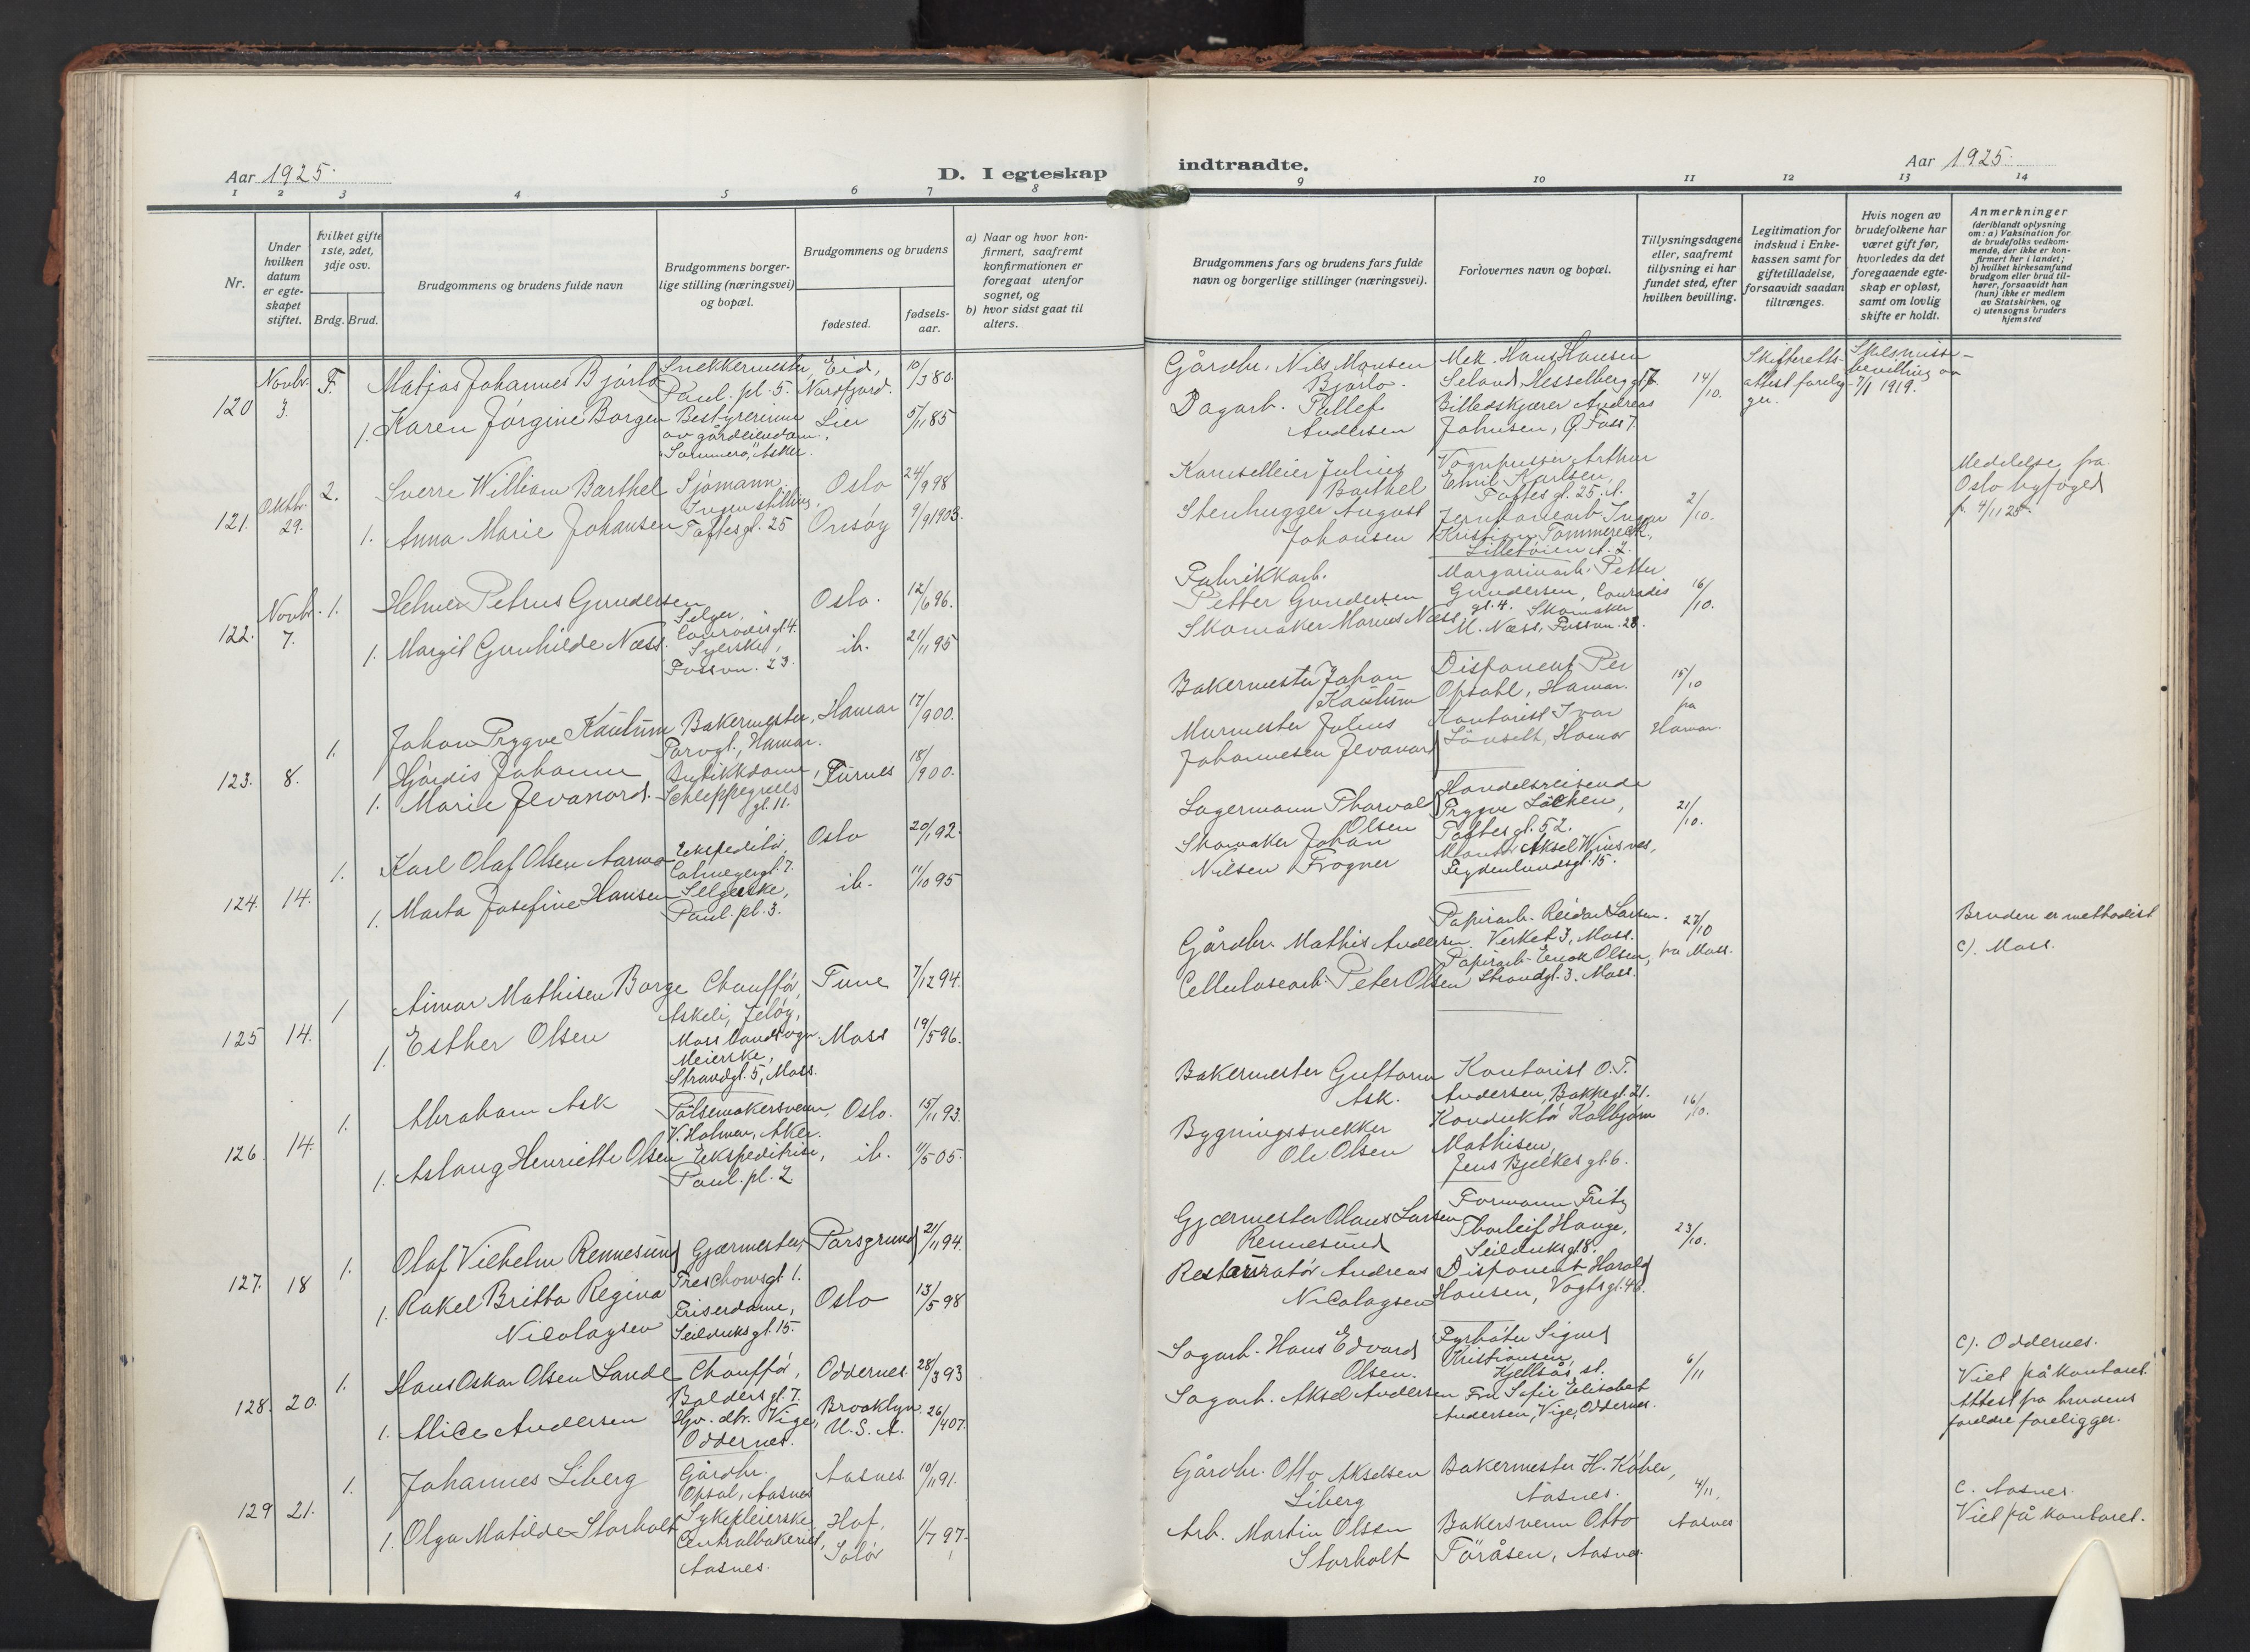 Aar 1925.
D. I egteskap
indtraadte.
Aar 1925.
1 2 3 4 5 6 7 8
9 10 11 12 13 14
Nr.
Under hvilken datum er egteskapet stiftet.
hvilket gifte 1ste, 2det, 3dje osv.
Brdg. Brud.
Brudgommens og brudens fulde navn
Brudgommens borgerlige stilling (næringsvei) og bopæl.
Brudgommens og brudens
fødested.
fødselsaar.
a) Naar og hvor konfirmert, saafremt konfirmationen er foregaat utenfor sognet, og
b) hvor sidst gaat til alters.
Brudgommens fars og brudens fars fulde navn og borgerlige stillinger (næringsvei).
Forlovernes navn og bopæl.
Tillysningsdagene eller, saafremt tillysning ei har fundet sted, efter hvilken bevilling.
Legitimation for indskud i Enkekassen samt for giftetilladelse, forsaavidt saadan tiltrænges.
Hvis nogen av brudefolkene har været gift før, hvorledes da det foregaaende egteskap er opløst, samt om lovlig skifte er holdt.
Anmerkninger (deriblandt oplysning om: a) Vaksination for de brudefolks vedkommende, der ikke er konfirmert her i landet; b) hvilket kirkesamfund brudgom eller brud tilhører, forsaavidt han (hun) ikke er medlem av Statskirken, og c) utensogns bruders hjemsted
120 Novbr. 3. F. Matjas Johannes Bjørlo Snekkermester, Paul. pl. 5. Eid, Nordfjord. 10/3 80.
1. Karen Jørgine Borgen Bestyrerinne av gårdeiendom, "Sommerro", Asker. Lier 5/11 85
Gårdbr. Nils Monsen Bjørlo.
Dagarb. Tellef Andersen
Mek. Hans Hansen Seland, Hesselbergs gt. 7.
Billedskjærer Andreas Johnsen, Ø. Foss 7.
14/10.
Skifteretts-attest foreligger.
Skilsmisse-bevilling av 7/1 1919.
121. Oktbr. 29. 2. Sverre William Barthel Sjømann. Oslo 24/9 98
1. Anna Marie Johansen Ingen stilling, Toftesgt. 25 Onsøy 9/9 1903.
Kanselleier Julius Barthel
Stenhugger August Johansen
Vognpusser Arthur Emil Karlsen, Toftes gt. 25. A.
Jernbanearb. Ingar Kristian Tommereek, Lilletøien A. 2.
2/10.
Meddelelse fra Oslo byfoged p. 4/11 25.
122. Novbr. 7. 1. Helmer Petrus Gundersen Selger, Conradis gt. 4. Oslo. 12/6 96.
1. Margit Gunhilde Næss. Syerske, Fossvn. 23. ib. 21/11 95
Fabrikkarb. Petter Gundersen
Skomaker Marius Næss
Margarinarb. Petter Gundersen, Conradis gt. 4. Skomaker M. Næss, Fossvn. 23.
16/10.
123. 8. 1. Johan Trygve Kautum Bakermester, Torvgt., Hamar. Hamar 17/ 900.
1. Hjørdis Johanne Marie Jevanord. Butikkdame, Schleppegrells gt. 11. Furnes 18/ 900.
Bakermester Johan Kautum
Murmester Julius Johannesen Jevanord
Disponent Per Opsahl, Hamar.
Kontorist Ivar Lönseth, Hamar
15/10 fra Hamar.
124. 14. 1. Karl Olaf Olsen Aarmo Ekspeditør, Colmeyergt. 7. Oslo 20/1 92.
1. Marta Josefine Hansen Selgerske, Paul. pl. 3. ib. 11/10 95
Lagermann Thorvald Olsen
Skomaker Johan Nilsen Frogner
Handelsreisende Trygve Løchen, Toftes gt. 52.
Montør Aksel Winsnes, Frydenlundsgt. 15.
21/10.
125 14. 1 Aimar Mathisen Borge Chauffør, Askeli, Jeløy, Moss landsogn. Tune 7/12 94.
1. Esther Olsen Meierske, Strandgt. 5, Moss. Moss 19/5 96.
Gårdbr. Mathis Andersen.
Cellulosearb. Peter Olsen
Papirarb. Reidar Larsen. Verket 3, Moss.
Papirarb. Enok Olsen, Strandgt. 3. Moss.
27/10 fra Moss.
Bruden er methodist
c). Moss.
126. 14. 1. Abraham Ask Pølsemakersvenn, V. Holmen, Aker. Oslo. 15/11 93.
1. Aslaug Henriette Olsen Ekspeditrise, Paul. pl. 2. ib. 11/5 05.
Bakermester Guttorm Ask.
Bygningssnekker Ole Olsen
Kontorist O. T. Andersen, Bakkegt. 21.
Konduktør Kolbjørn Mathisen, Jens Bjelkes gt. 6.
16/10.
127. 18 1. Olaf Vilhelm Rennesund Gjærmester, Treschowsgt. 1. Porsgrund 21/11 94.
1. Rakel Britta Regina Nicolaysen Friserdame, Seilduksgt. 15. Oslo 13/5 98
Gjærmester Olaus Larsen Rennesund
Restauratør Andreas Nicolaysen
Formann Fritz Thorleif Hauge, Seilduksgt. 8.
Disponent Harald Hansen, Vogtsgt. 46.
23/10.
128. 20. 1. Hans Oskar Olsen Sande Chauffør, Balders gt. 7. Oddernes. 28/3 93
1. Alice Andersen Hv. dtr. Vige, Oddernes. Brooklyn. U. S. A. 26/4 07.
Sagarb. Hans Edvard Olsen.
Sagarb. Aksel Andersen
Fyrbøter Sigurd Kristiansen, Kjellsås st.
Fru Sofie Elisabet Andersen, Vige, Oddernes.
6/11
c). Oddernes.
Viet på kontoret.
Attest fra brudens foreldre foreligger.
129 21. 1. Johannes Liberg Gårdbr. Opsal, Aasnes Aasnes. 10/11 91.
1. Olga Matilde Storholt Sykepleierske, Centralbakeriet, Aasnes. Hof, Solør 1/7 97.
Gårdbr. Otto Akselsen Liberg
Arb. Martin Olsen Storholt
Bakermester H. Køber, Aasnes.
Bakersvenn Otto Töråsen, Aasnes.
4/11. Aasnes
c. Aasnes.
Viet på kontoret.